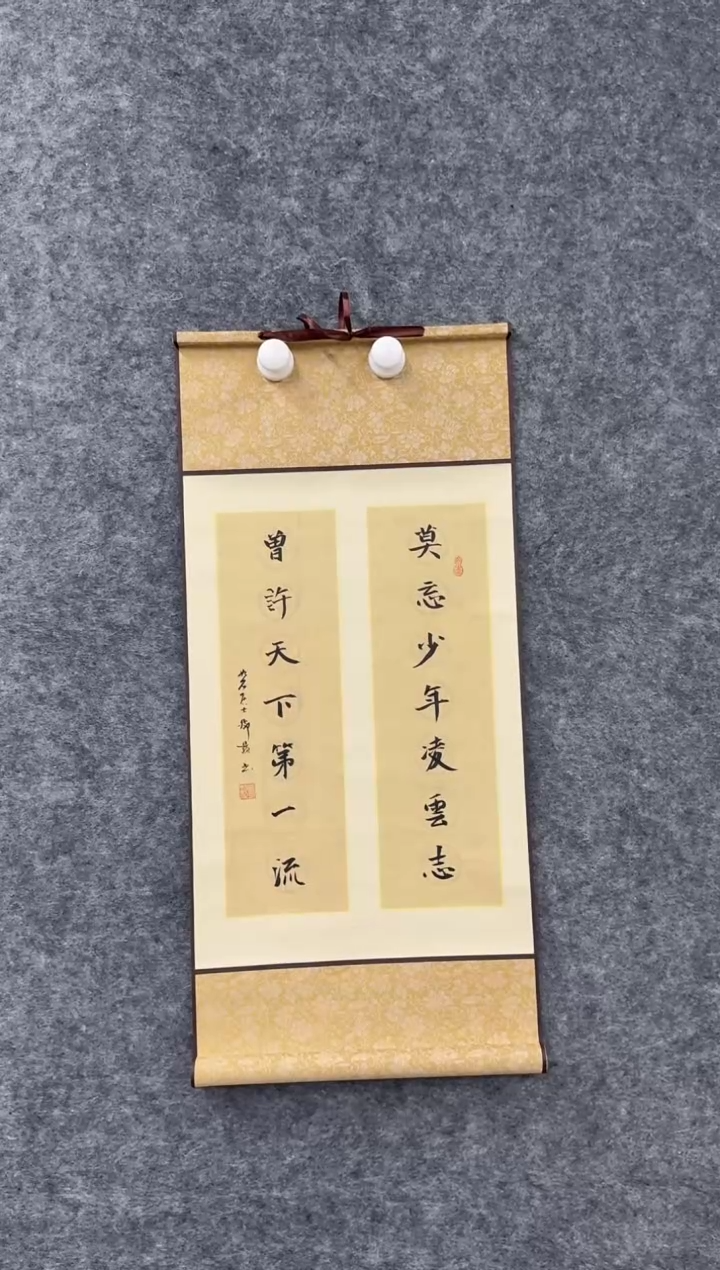 莫忘少年凌雲志
曾許天下第一流